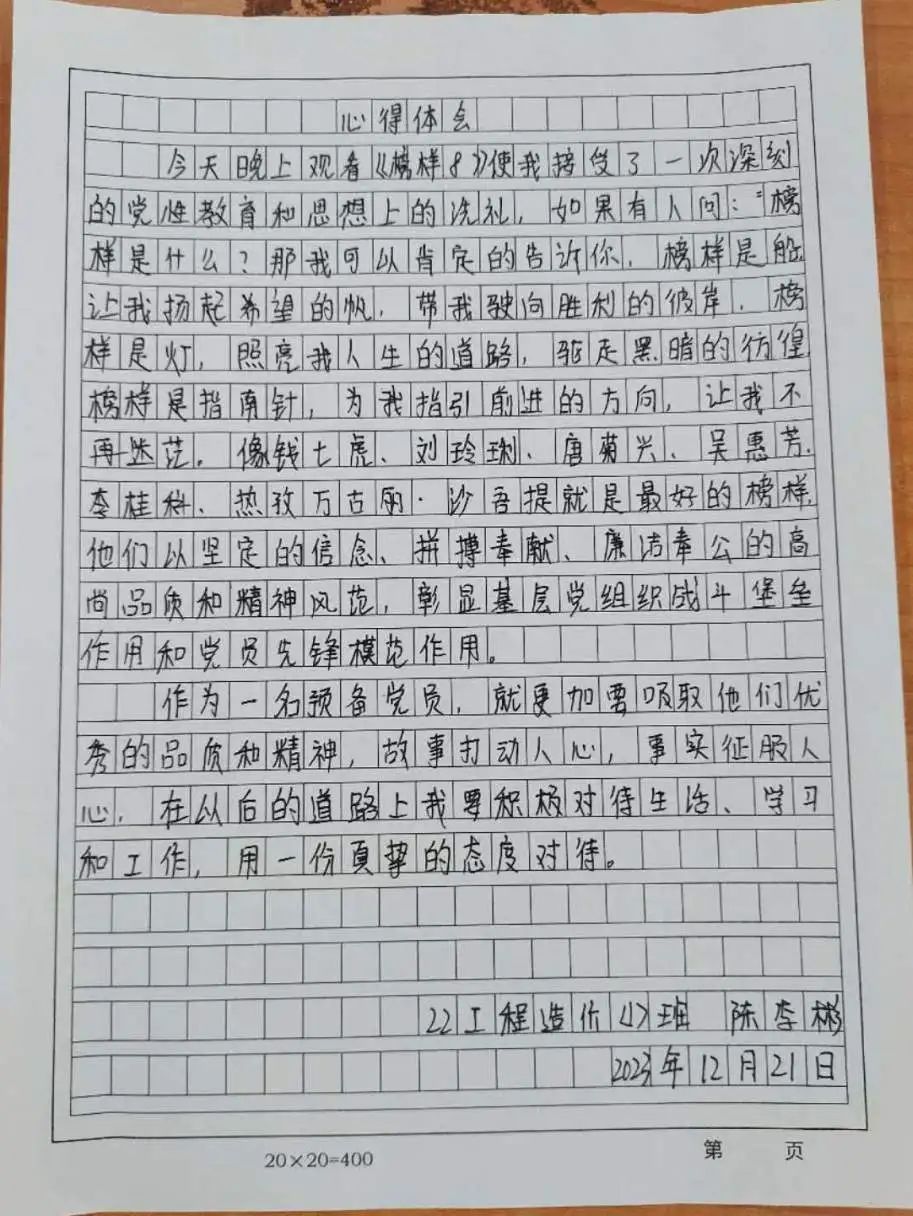 心得体会
今天晚上观看《榜样8》使我接受了一次深刻
的党性教育和思想上的洗礼，如果有人问：“榜
样是什么？那我可以肯定的告诉你，榜样是船
让我扬起希望的帆，带我驶向胜利的彼岸，榜
样是灯，照亮我人生的道路，驱走黑暗的彷徨
榜样是指南针，为我指引前进的方向，让我不
再迷茫。像钱七虎、刘玲琍、唐菊兴、吴惠芳、
李桂科、热孜万古丽·沙吾提就是最好的榜样，
他们以坚定的信念、拼搏奉献、廉洁奉公的高
尚品质和精神风范，彰显基层党组织战斗堡垒
作用和党员先锋模范作用。
作为一名预备党员，就更加要吸取他们优
秀的品质和精神，故事打动人心，事实征服人
心，在以后的道路上我要积极对待生活、学习
和工作，用一份真挚的态度对待。
22工程造价(1)班 陈李彬
2023年12月21日
20×20=400
第 页